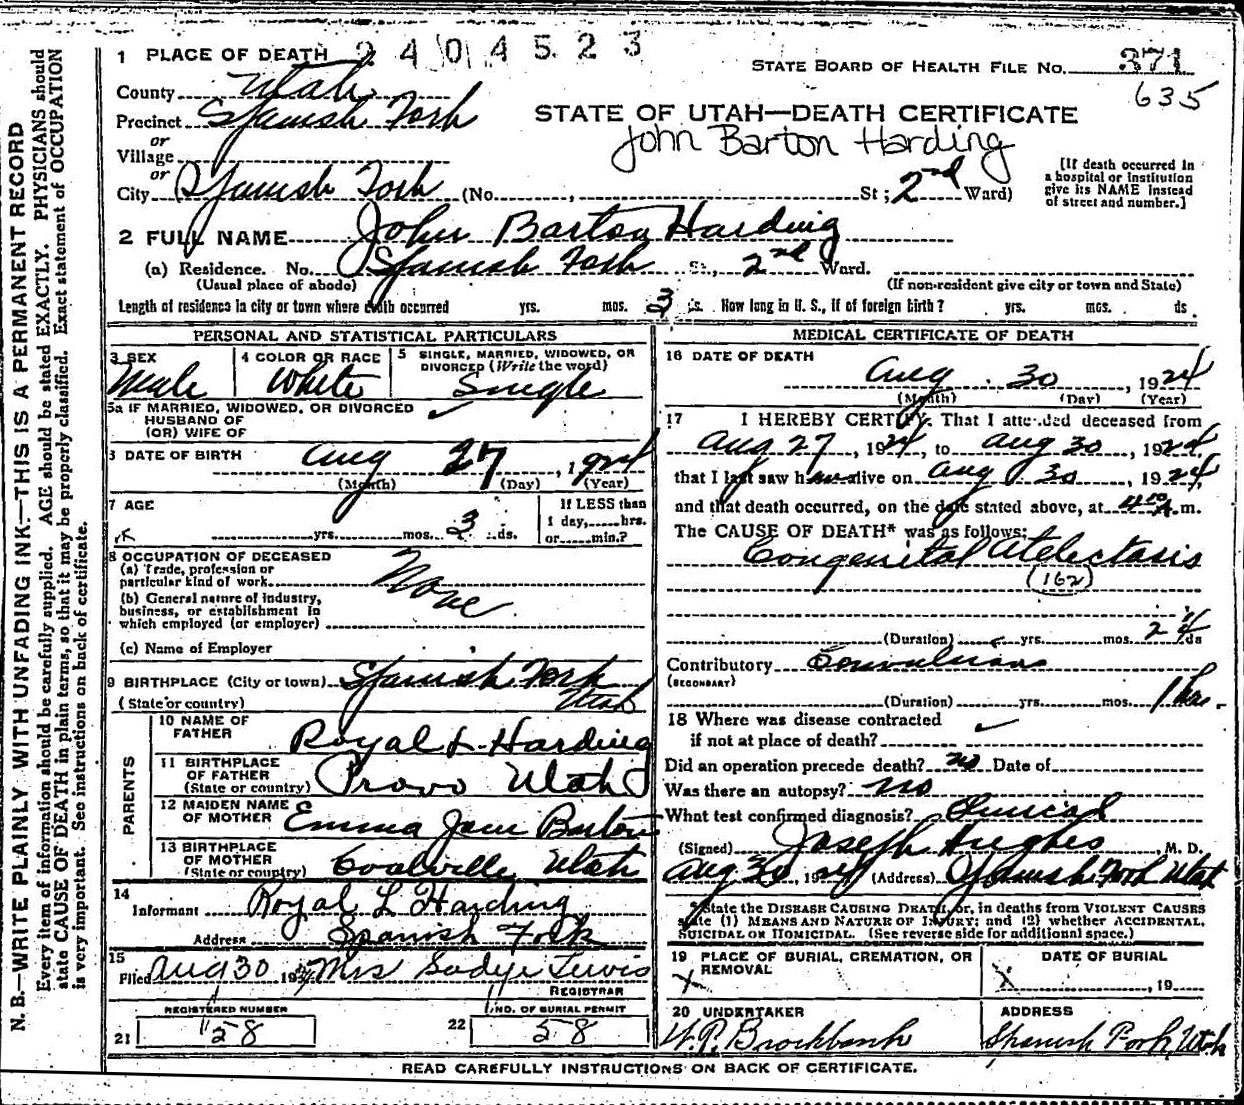 1 PLACE OF DEATH 2404523
STATE BOARD OF HEALTH FILE No. 371
635
County Utah
Precinct Spanish Fork
or
Village
or
City Spanish Fork (No. , St; 2nd Ward)
STATE OF UTAH—DEATH CERTIFICATE
John Barton Harding
[If death occurred in a hospital or institution give its NAME instead of street and number.]
2 FULL NAME John Barton Harding
(a) Residence. No. Spanish Fork St., 2nd Ward.
(Usual place of abode) (If non-resident give city or town and State)
Length of residence in city or town where death occurred yrs. mos. 3 ds. How long in U. S., if of foreign birth? yrs. mos. ds.
PERSONAL AND STATISTICAL PARTICULARS
3 SEX Male
4 COLOR OR RACE White
5 SINGLE, MARRIED, WIDOWED, OR DIVORCED (Write the word) Single
5a IF MARRIED, WIDOWED, OR DIVORCED
HUSBAND OF
(OR) WIFE OF
DATE OF BIRTH Aug 27, 1924
(Month) (Day) (Year)
7 AGE yrs. mos. 3 ds.
If LESS than
1 day, hrs.
or min.?
8 OCCUPATION OF DECEASED
(a) Trade, profession or
particular kind of work None
(b) General nature of industry,
business, or establishment in
which employed (or employer)
(c) Name of Employer
9 BIRTHPLACE (City or town) Spanish Fork
(State or country) Utah
PARENTS
10 NAME OF FATHER Royal L. Harding
11 BIRTHPLACE OF FATHER (State or country) Provo Utah
12 MAIDEN NAME OF MOTHER Emma Jane Barton
13 BIRTHPLACE OF MOTHER (State or country) Coalville Utah
14
Informant Royal L Harding
Address Spanish Fork
15
Filed Aug 30 1924 Mrs Sadye Lewis
REGISTRAR
REGISTERED NUMBER
21 58
NO. OF BURIAL PERMIT
22 58
MEDICAL CERTIFICATE OF DEATH
16 DATE OF DEATH
Aug. 30, 1924
(Month) (Day) (Year)
17 I HEREBY CERTIFY, That I attended deceased from
Aug 27, 1924, to Aug 30, 1924
that I last saw him alive on Aug 30, 1924,
and that death occurred, on the date stated above, at 4 10 A.m.
The CAUSE OF DEATH* was as follows:
Congenital Atelectasis
(162)
(Duration) yrs. mos. 2 ds
Contributory Convulsions
(SECONDARY)
(Duration) yrs. mos. 1 hr.
18 Where was disease contracted
if not at place of death?
Did an operation precede death? no Date of
Was there an autopsy? no
What test confirmed diagnosis? Clinical
(Signed) Joseph Hughes, M. D.
Aug 30, 1924 (Address) Spanish Fork Utah
*State the DISEASE CAUSING DEATH, or, in deaths from VIOLENT CAUSES
state (1) MEANS AND NATURE OF INJURY; and (2) whether ACCIDENTAL,
SUICIDAL OR HOMICIDAL. (See reverse side for additional space.)
19 PLACE OF BURIAL, CREMATION, OR REMOVAL
X
DATE OF BURIAL
X , 19
20 UNDERTAKER
W. P. Brockbank
ADDRESS
Spanish Fork, Utah
READ CAREFULLY INSTRUCTIONS ON BACK OF CERTIFICATE.
N. B.—WRITE PLAINLY WITH UNFADING INK.—THIS IS A PERMANENT RECORD
Every item of information should be carefully supplied. AGE should be stated EXACTLY. PHYSICIANS should
state CAUSE OF DEATH in plain terms, so that it may be properly classified. Exact statement of OCCUPATION
is very important. See instructions on back of certificate.